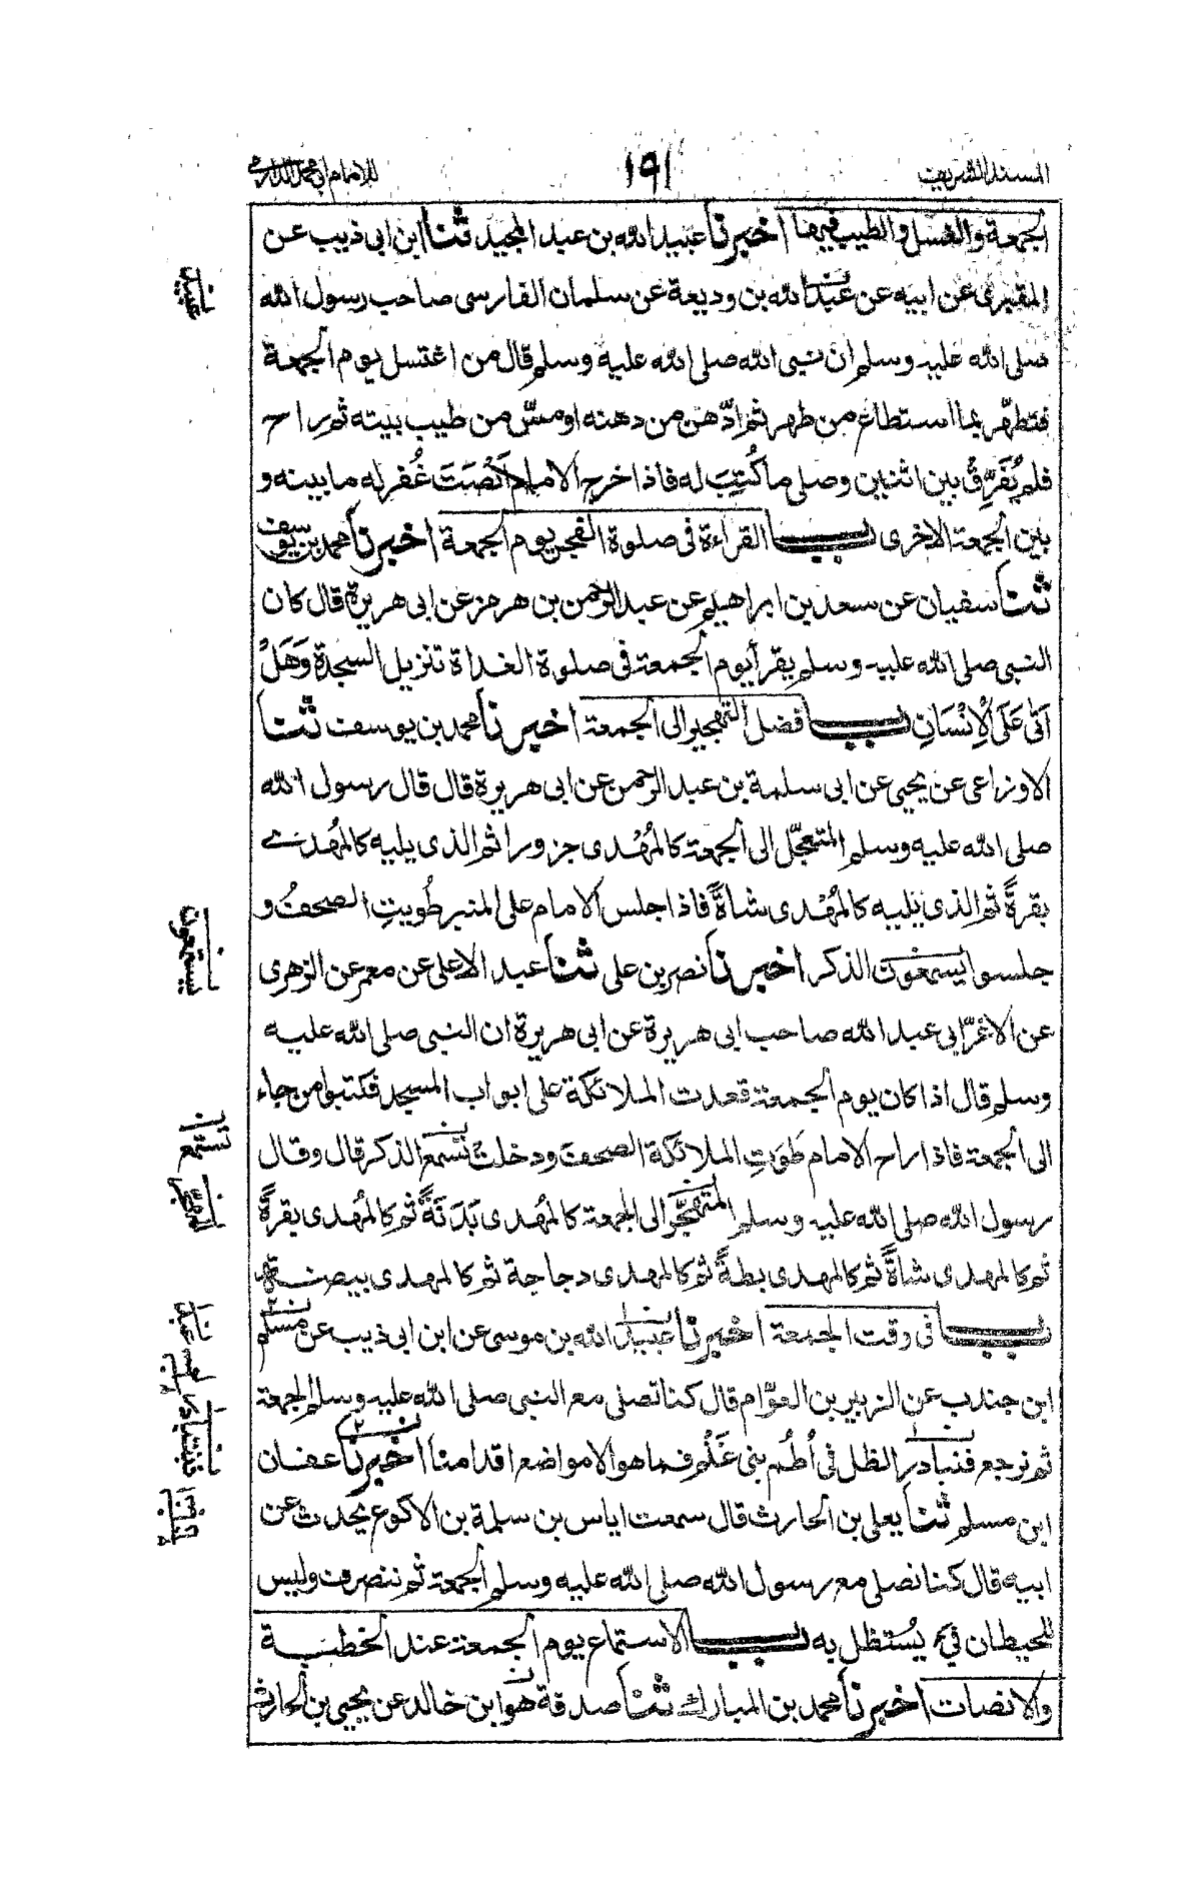 المسند الشريف
١٩١
للامام ابي محمد الدارمي
الجمعة والغسل والطيب فيها اخبرنا عبيد الله بن عبد المجيد ثنا ابن ابى ذيب عن
المقبرى عن ابيه عن عبد الله بن وديعة عن سلمان الفارسى صاحب رسول الله
صلى الله عليه وسلم ان نبى الله صلى الله عليه وسلم قال من اغتسل يوم الجمعة
فتطهّر بما استطاع من طهر ثم ادّهن من دهنه او مسّ من طيب بيته ثم راح
فلم يُفَرِّقْ بين اثنين وصلى ما كُتِبَ له فاذا خرج الامام اَنْصَتَ غُفر له ما بينه و
بين الجمعة الاخرى باب القراءة فى صلوة الفجر يوم الجمعة اخبرنا محمد بن يوسف
ثنا سفيان عن سعد بن ابراهيم عن عبد الرحمن بن هرمز عن ابى هريرة قال كان
النبى صلى الله عليه وسلم يقرأ يوم الجمعة فى صلوة الغداة تنزيل السجدة وَهَلْ
اَتٰى عَلَى الْاِنْسَانِ باب فضل التهجير الى الجمعة اخبرنا محمد بن يوسف ثنا
الاوزاعى عن يحيى عن ابى سلمة بن عبد الرحمن عن ابى هريرة قال قال رسول الله
صلى الله عليه وسلم المتعجّل الى الجمعة كالمُهْدى جزورا ثم الذى يليه كالمُهْدى
بقرةً ثم الذى يليه كالمُهْدى شاةً فاذا جلس الامام على المنبر طُويتِ الصحفُ و
جلسوا يسمعون الذكر اخبرنا نصر بن على ثنا عبد الاعلى عن معمر عن الزهرى
عن الاغرّ ابى عبد الله صاحب ابى هريرة عن ابى هريرة ان النبى صلى الله عليه
وسلم قال اذا كان يوم الجمعة قعدت الملائكة على ابواب المسجد فكتبوا من جاء
الى الجمعة فاذا راح الامام طَوَتِ الملائكة الصحف ودخلتْ تسمع الذكر قال وقال
رسول الله صلى الله عليه وسلم المتهجّر الى الجمعة كالمُهْدى بَدَنَةً ثم كالمُهْدى بقرةً
ثم كالمهدى شاةً ثم كالمهدى بطةً ثم كالمهدى دجاجة ثم كالمهدى بيضة
باب فى وقت الجمعة اخبرنا عبيد الله بن موسى عن ابن ابى ذيب عن مسلم
ابن جندب عن الزبير بن العوّام قال كنا نصلى مع النبى صلى الله عليه وسلم الجمعة
ثم نرجع فنبادر الظل فى اُطُم بنى غَنْم فما هو الا مواضع اقدامنا اخبرنا عفان
ابن مسلم ثنا يعلى بن الحارث قال سمعت اياس بن سلمة بن الاكوع يحدث عن
ابيه قال كنا نصلى مع رسول الله صلى الله عليه وسلم الجمعة ثم ننصرف وليس
للحيطان فَيْء يُستظل به باب الاستماع يوم الجمعة عند الخطبة
والانصات اخبرنا محمد بن المبارك ثنا صدقة هو ابن خالد عن يحيى بن الحارث
عبيد
يستمعون